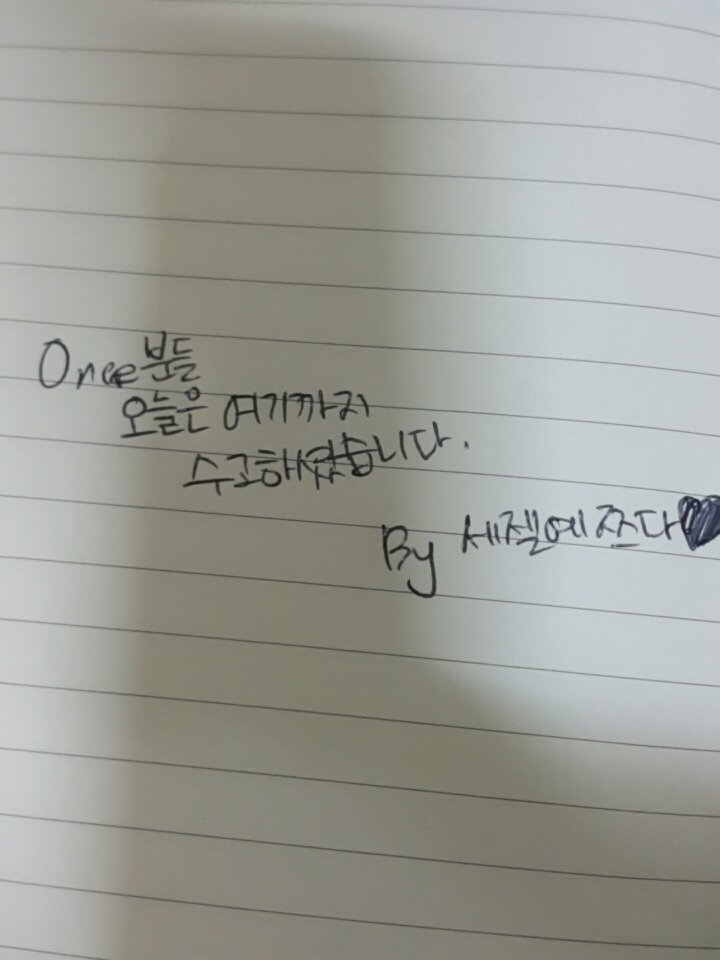 Once분들
오늘은 여기까지
수고하셨습니다.
By 세젤예쯔다♥